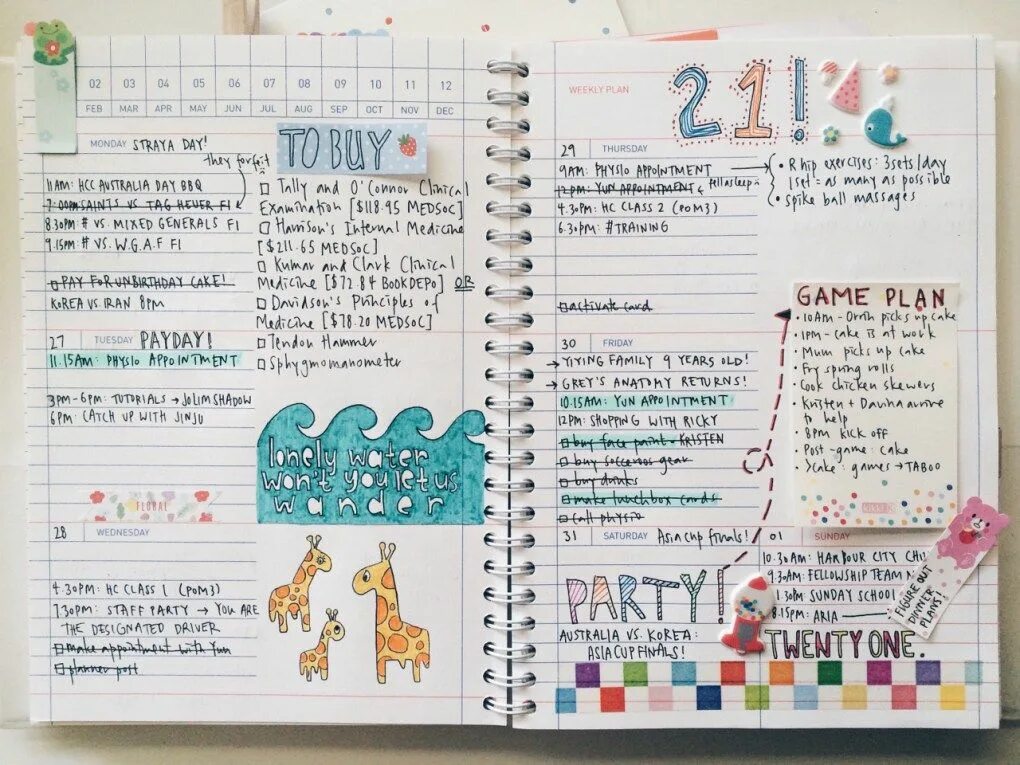 02 03 04 05 06 07 08 09 10 11 12
FEB MAR APR MAY JUN JUL AUG SEP OCT NOV DEC
MONDAY STRAYA DAY!
they forfeit
11AM: HCC AUSTRALIA DAY BBQ
7:00PM SAINTS VS TAG HEUER F1
8.30PM: # VS. MIXED GENERALS F1
9.15PM: # VS. W.G.A.F F1
PAY FOR UNBIRTHDAY CAKE!
KOREA VS. IRAN 8PM
27 TUESDAY PAYDAY!
11.15AM: PHYSIO APPOINTMENT
3PM-6PM: TUTORIALS → JOLIMSHADOW
6PM: CATCH UP WITH JINJU
FLORAL
28 WEDNESDAY
4.30PM: HC CLASS 1 (POM3)
7.30PM: STAFF PARTY → YOU ARE
THE DESIGNATED DRIVER
make appointment with Yun
planner post
TO BUY
Tally and O'Connor Clinical
Examination [$118.95 MEDSOC]
Harrison's Internal Medicine
[$211.65 MEDSOC]
Kumar and Clark Clinical
Medicine [$72.84 BOOKDEPO] OR
Davidson's Principles of
Medicine [$78.20 MEDSOC]
Tendon Hammer
Sphygmomanometer
lonely water
won't you let us
wander
WEEKLY PLAN
21!
29 THURSDAY
9AM: PHYSIO APPOINTMENT
12PM: YUN APPOINTMENT ← fell asleep
4.30PM: HC CLASS 2 (POM3)
6.30PM: #TRAINING
activate card
• R hip exercises: 3sets/day
1set = as many as possible
• spike ball massages
30 FRIDAY
→ YIYING FAMILY 9 YEARS OLD!
→ GREY'S ANATOMY RETURNS!
10.15AM: YUN APPOINTMENT
12PM: SHOPPING WITH RICKY
buy face paint - KRISTEN
buy socceroos gear
buy drinks
make lunchbox cards
call physio
GAME PLAN
• 10AM - Orrin picks up cake
• 1PM - cake is at work
• Mum picks up cake
• Fry spring rolls
• Cook chicken skewers
• Kristen + Davina arrive
to help
• 8pm kick off
• Post-game: cake
• >cake: games → TABOO
31 SATURDAY Asia cup finals!
PARTY!
AUSTRALIA VS. KOREA:
ASIA CUP FINALS!
01 SUNDAY
10.30AM: HARBOUR CITY
9.30AM: FELLOWSHIP TEAM
1.30PM: SUNDAY SCHOOL
8.15PM: ARIA
FIGURE OUT
DINNER
PLANS!
TWENTY ONE.